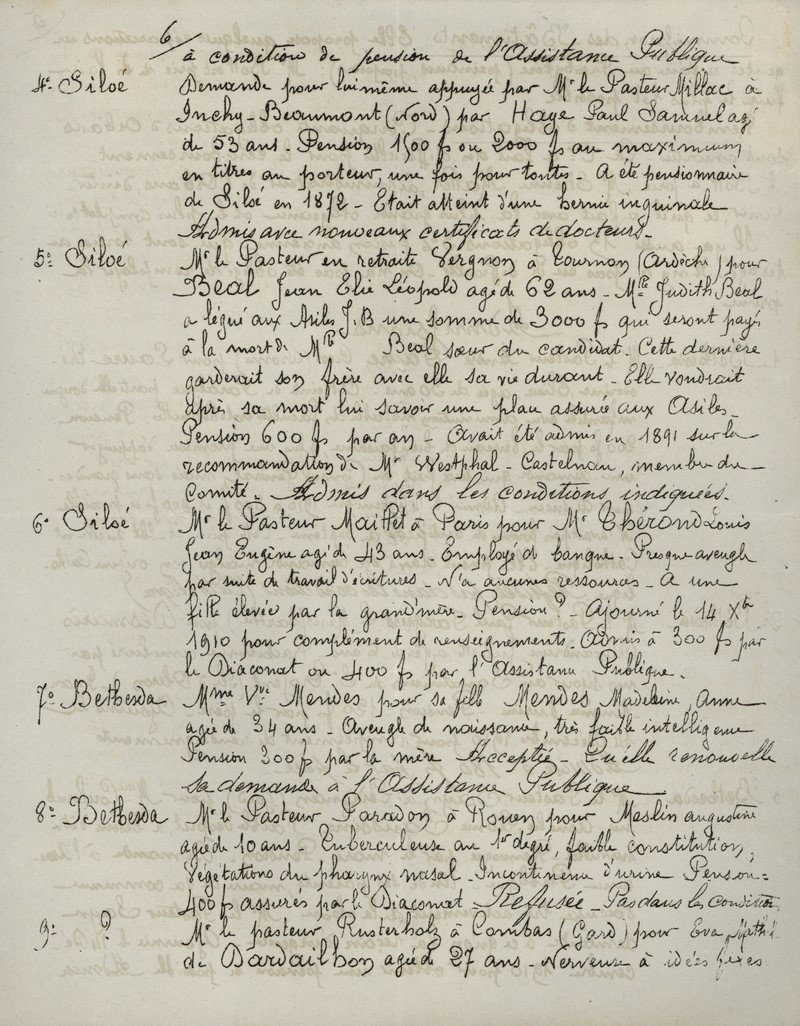 6/ à condition de pension de l'Assistance Publique
4º Siloé Demande pour lui même appuyée par Mr le Pasteur Millac à
Inchy-Beaumont (Nord) par Haye Paul Samuel agé
de 53 ans - Pension 1500 f ou 2000 f au maximum
en titres au porteur, une fois pour toutes - A été pensionnaire
de Siloé en 1872 - Etait atteint d'une hernie inguinale
Admis avec nouveaux certificats de docteurs -
5º Siloé Mr le Pasteur en retraite Vergnon à Tournon (Ardèche) pour
Béal Jean Elie Léopold agé de 62 ans - Mlle Judith Beal
a légué aux Asiles J.B une somme de 3000 f qui seront payés
à la mort de Mlle Beal sœur du candidat. Cette dernière
garderait son frère avec elle sa vie durant - Elle voudrait
après sa mort lui savoir une place assurée aux Asiles -
Pension 600 f par an - Avait été admis en 1891 sur la
recommandation de Mr Westphal - Castelnau, membre du
Comité - Admis dans les conditions indiquées.
6º Siloé Mr le Pasteur à Paris pour Mr Thérond Louis
Jean Eugène agé de 43 ans - Employé de banque - Presque aveugle
par suite de travail d'écritures - N'a aucunes ressources - A une
fille élevée par la grand'mère - Pension ? - Ajourné le 14 Xbre
1910 pour complément de renseignements - Admis à 300 f par
le Diaconat ou 400 f par l'Assistance Publique.
7º Bethesda Mme Vve Mendes pour sa fille Mendes Madeleine, Anne
agée de 34 ans - Aveugle de naissance, très faible intelligence
Pension 300 f par la mère Acceptée - Qu'elle renouvelle
sa demande à l'Assistance Publique
8º Bethesda Mr le Pasteur Paradon à Rouen pour Meslin Augustine
agée de 10 ans - Tuberculeuse au 1er degré, faible constitution,
Végétations du pharynx nasal - Incontinence d'urine Pension =
400 f assurés par le Diaconat - Refusée - Pas dans les conditions
9º ? Mr le pasteur Rusterholz à Combas (Gard) pour Eva
de Dardailhon agée de 27 ans - Nerveuse à idées fixes